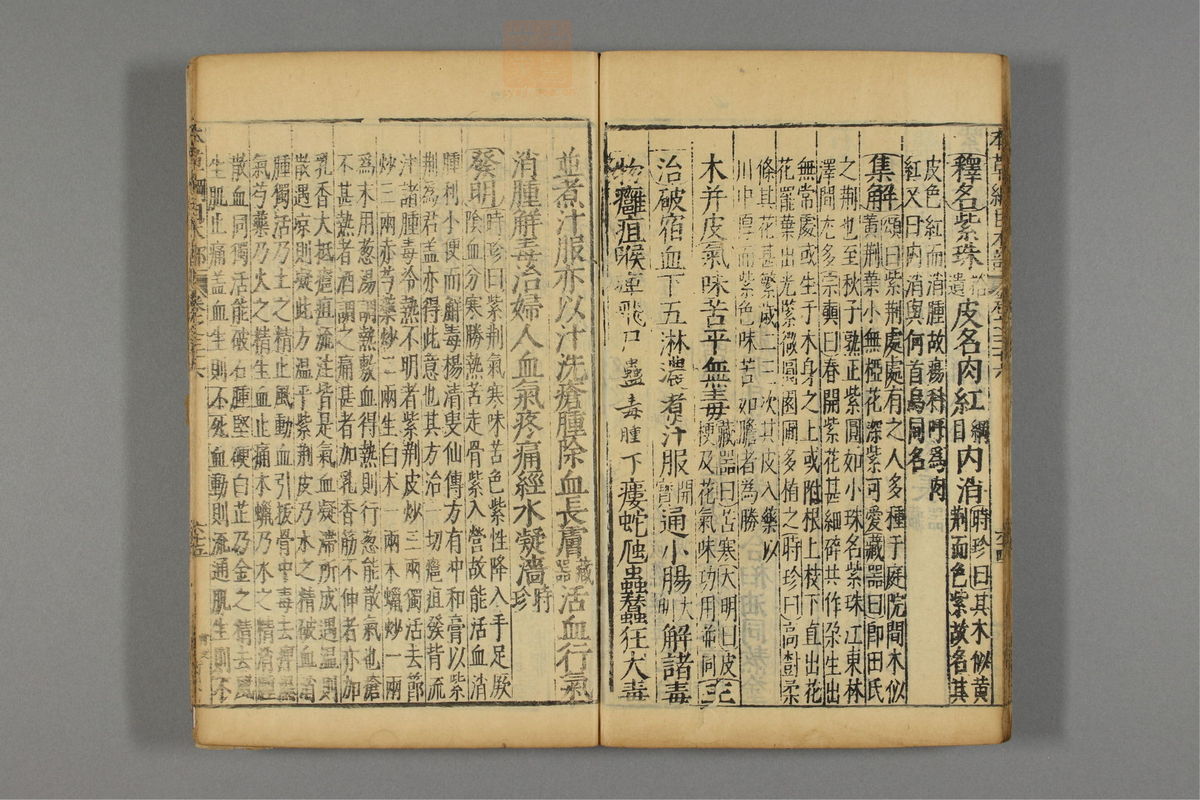 本草綱目木部 卷之三十六 六十四
釋名紫珠拾遺皮名肉紅綱目内消時珍曰其木似黄
荆而色紫故名其
皮色紅而消腫故瘍科呼為肉
紅又曰内消與何首烏同名
集解頌曰紫荆處處有之人多種于庭院間木似
黄荆葉小無椏花深紫可愛藏器曰即田氏
之荆也至秋子熟正紫圓如小珠名紫珠江東林
澤間尤多宗奭曰春開紫花甚細碎共作朶生出
無常處或生于木身之上或附根上枝下直出花
花罷葉出光紫微圓園圃多植之時珍曰高樹柔
條其花甚繁歲二三次其皮入藥以
川中厚而紫色味苦如膽者為勝
木并皮氣味苦平無毒藏器曰苦寒大明曰皮
梗及花氣味功用並同主
治破宿血下五淋濃煮汁服開寶通小腸大明解諸毒
物癰疽喉痺飛尸蠱毒腫下瘻蛇虺蟲蠶狂犬毒
並煮汁服亦以汁洗瘡腫除血長膚藏器活血行氣
消腫解毒治婦人血氣疼痛經水凝濇時珍
發明時珍曰紫荆氣寒味苦色紫性降入手足厥
陰血分寒勝熱苦走骨紫入營故能活血消
腫利小便而解毒楊清叟仙傳方有冲和膏以紫
荆為君蓋亦得此意也其方治一切癰疽發背流
注諸腫毒冷熱不明者紫荆皮炒三兩獨活去節
炒三兩赤芍藥炒二兩生白木一兩木蠟炒一兩
為末用葱湯調熱敷血得熱則行葱能散氣也瘡
不甚熱者酒調之痛甚者加乳香筋不伸者亦加
乳香大抵癰疽流注皆是氣血凝滯所成遇温則
散遇凉則凝此方温平紫荆皮乃木之精破血消
腫獨活乃土之精止風動血引拔骨中毒去痺濕
氣芍藥乃火之精生血止痛木蠟乃水之精消腫
散血同獨活能破石腫堅硬白芷乃金之精去風
生肌止痛蓋血生則不死血動則流通肌生則不
本草綱目木部 卷之三十六